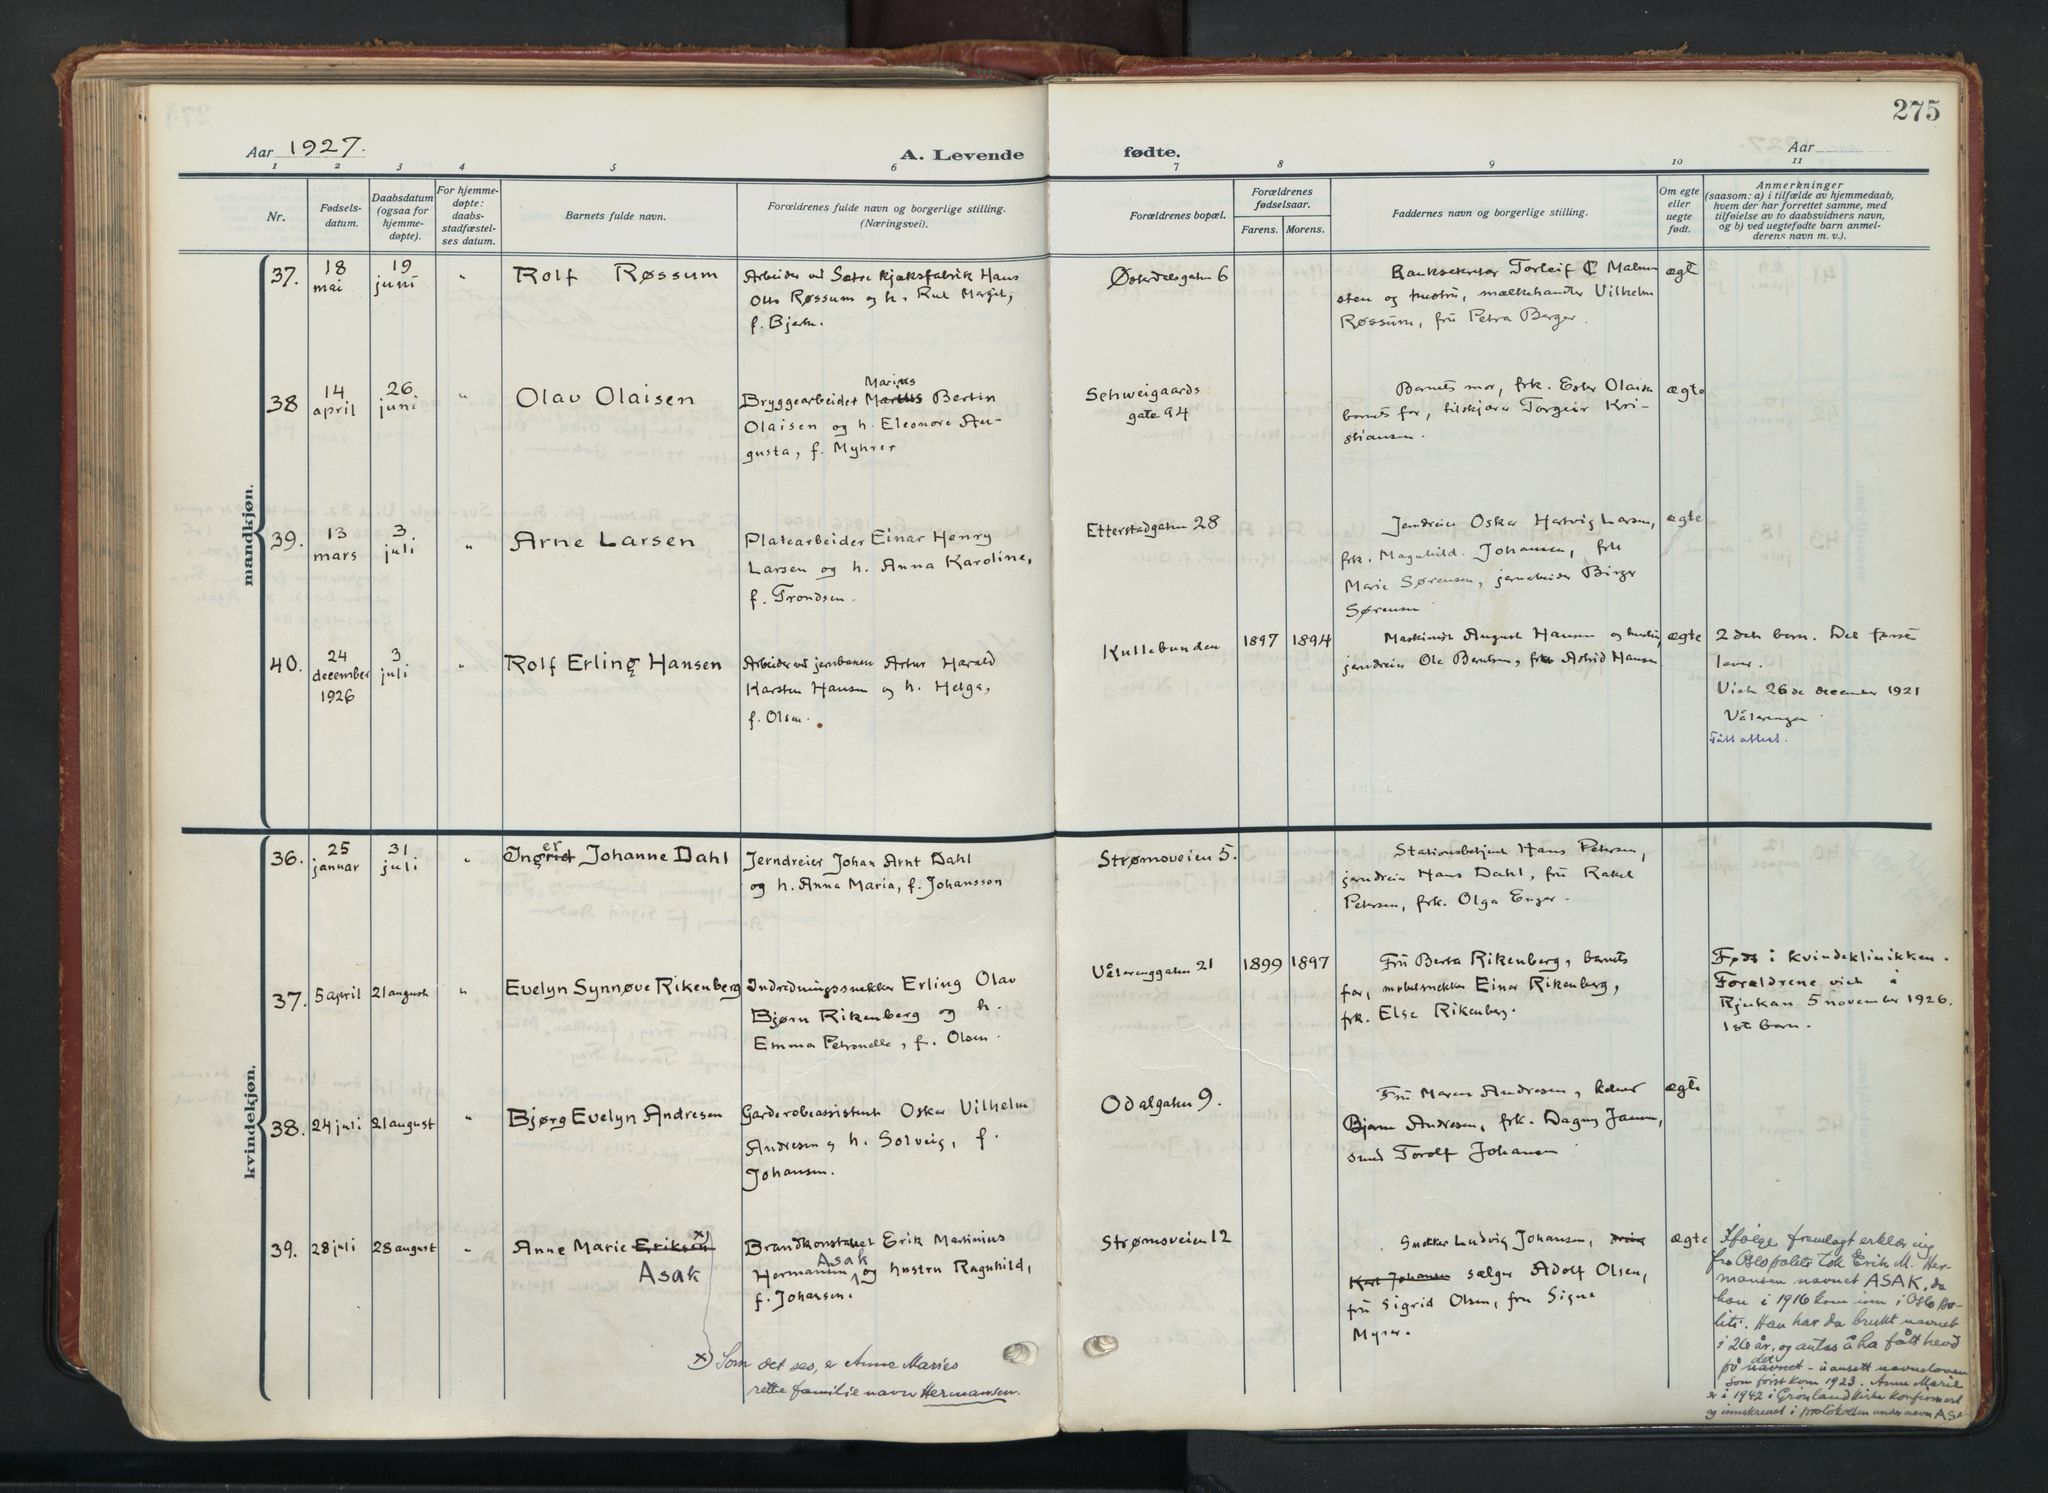 275
Aar 1927.
A. Levende fødte.
Aar
1 2 3 4 5 6 7 8 9 10 11
Nr.
Fødsels-
datum.
Daabsdatum
(ogsaa for
hjemme-
døpte).
For hjemme-
døpte:
daabs-
stadfæstel-
ses datum.
Barnets fulde navn.
Forældrenes fulde navn og borgerlige stilling.
(Næringsvei).
Forældrenes bopæl.
Forældrenes
fødselsaar.
Farens. Morens.
Faddernes navn og borgerlige stilling.
Om egte
eller
uegte
født.
Anmerkninger
(saasom: a) i tilfælde av hjemmedaab,
hvem der har forrettet samme, med
tilføielse av to daabsvidners navn,
og b) ved uegtefødte barn anmel-
derens navn m. v.).
mandkjøn.
37.
18
mai
19
juni
"
Rolf Røssum
Arbeider ved Sætre kjæksfabrik Hans
Otto Røssum og h. Rut Margit,
f. Bjerke.
Østerdalsgaten 6
Banksekretær Torleif C Malm
sten og hustru, mælkehandler Vilhelm
Røssum, fru Petra Berger.
ægt
38
14
april
26
juni
"
Olav Olaisen
Marius
Bryggearbeider Bertin
Olaisen og h. Eleonore Au-
gusta, f. Myhrer
Schweigaards
gate 94
Barnets mor, frk. Ester Olaisen
barnets far, tilskjærer Torgeir Kri-
stiansen.
ægte
39.
13
mars
3.
juli
"
Arne Larsen
Platearbeider Einar Henry
Larsen og h. Anna Karoline,
f. Trondsen.
Etterstadgaten 28
Jerndreier Oskar Hartvig Larsen,
frk. Magnhild Johansen, frk
Marie Sørensen, jernarbeider Birger
Sørensen
ægte
40.
24
december
1926
3
juli
"
Rolf Erling Hansen
Arbeider ved jernbanen Artur Harald
Karsten Hansen og h. Helga,
f. Olsen.
Kullebunden
1897 1894
Maskinist August Hansen og hustru,
jerndreier Ole Berntsen, frk Astrid Hansen
ægte
2 det barn. Det første
lever.
Viet 26 de december 1921
Vålerengen.
Fått attest.
kvindekjøn.
36.
25
januar
31
juli
"
er
Ingrid Johanne Dahl
Jerndreier Johan Arnt Dahl
og h. Anna Maria, f. Johansson
Strømsveien 5.
Stationsbetjent Hans Petersen,
jerndreier Hans Dahl, fru Rakel
Petersen, frk. Olga Enger.
37.
5 april
21 august
"
Evelyn Synnøve Rikenberg
Indredningssnekker Erling Olav
Bjørn Rikenberg og h.
Emma Petronelle, f. Olsen.
Vålerenggaten 21
1899 1897
Fru Berta Rikenberg, barnets
far, møbelsnekker Einar Rikenberg,
frk. Else Rikenberg.
Født i kvindeklinikken.
Forældrene viet i
Rjukan 5 november 1926.
1st barn.
38.
24 juli
21 august
"
Bjørg Evelyn Andresen
Garderobeassistent Oskar Vilhelm
Andresen og h. Solveig, f.
Johansen.
Odalgaten 9.
Fru Maren Andresen, kelner
Bjarne Andresen, frk. Dagny Jansen,
smed Torolf Johansen
ægte
39.
28 juli
28 august
"
Anne Marie Eriksen x)
Asak
Brandkonstabel Erik Martinius
Asak
Hermansen og hustru Ragnhild,
f. Johansen.
Strømsveien 12
Snekker Ludvig Johansen,
Karl Johansen sælger Adolf Olsen,
fru Sigrid Olsen, fru Signe
Myrer.
ægte
Ifølge fremlagt erklæring
fra Oslo politi tok Erik M. Her-
mansen navnet ASAK, da
han i 1916 kom inn i Oslo po-
liti. Han har da brukt navnet
i 26 år, og antas å ha fått hevd
på det navnet - uansett navneloven
som først kom 1923. Anne Marie
er i 1942 i Grønland kirke konfirmert
og innskrevet i protokollen under navn
x) Som det ses, er Anne Maries
rette familienavn Hermansen.